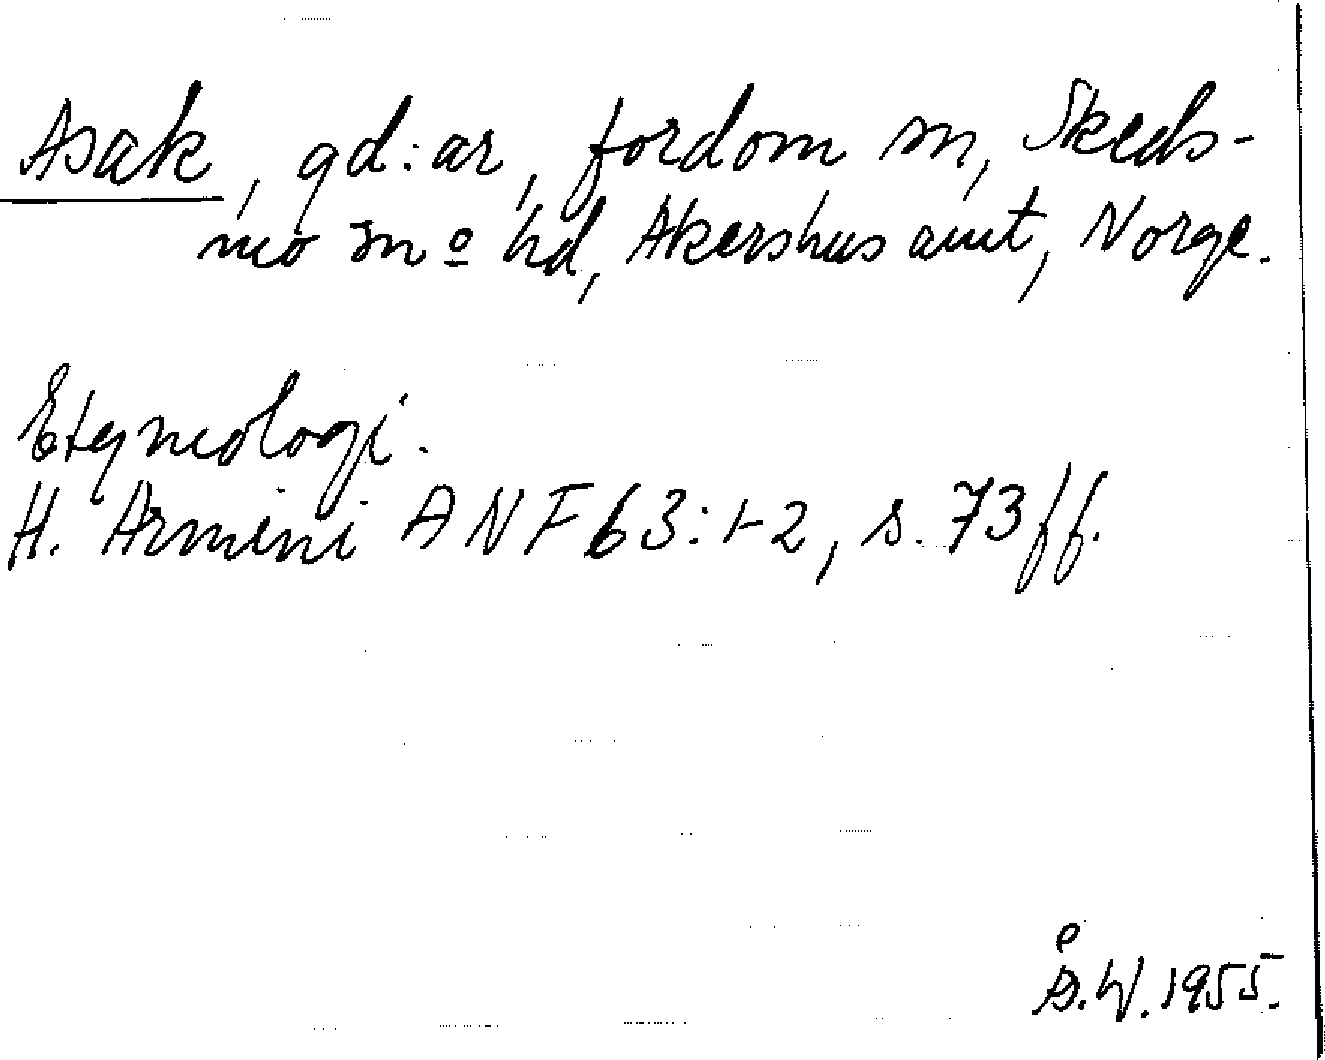 Asak, gd:ar, fordom sn, Skeds-
mo sn o hd, Akershus amt, Norge.
Etymologi.
H. Armini ANF 63:1-2, s. 73 ff.
Å.W. 1955.